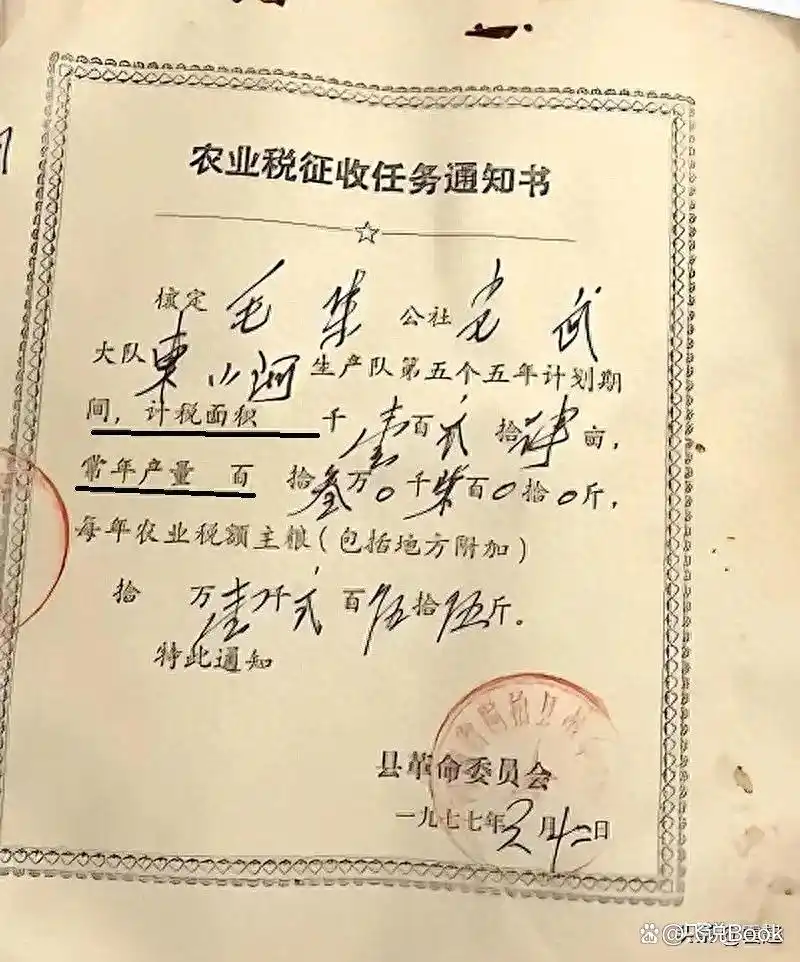 农业税征收任务通知书
核定 毛集 公社
大队東小河生产队第五个五年计划期
间，计税面积 千壹百贰拾肆亩，
常年产量 百 拾叁万0千柒百0拾0斤，
每年农业税额主粮（包括地方附加）
拾 万壹仟贰百伍拾伍斤。
特此通知
县革命委员会
一九七七年 月十二日